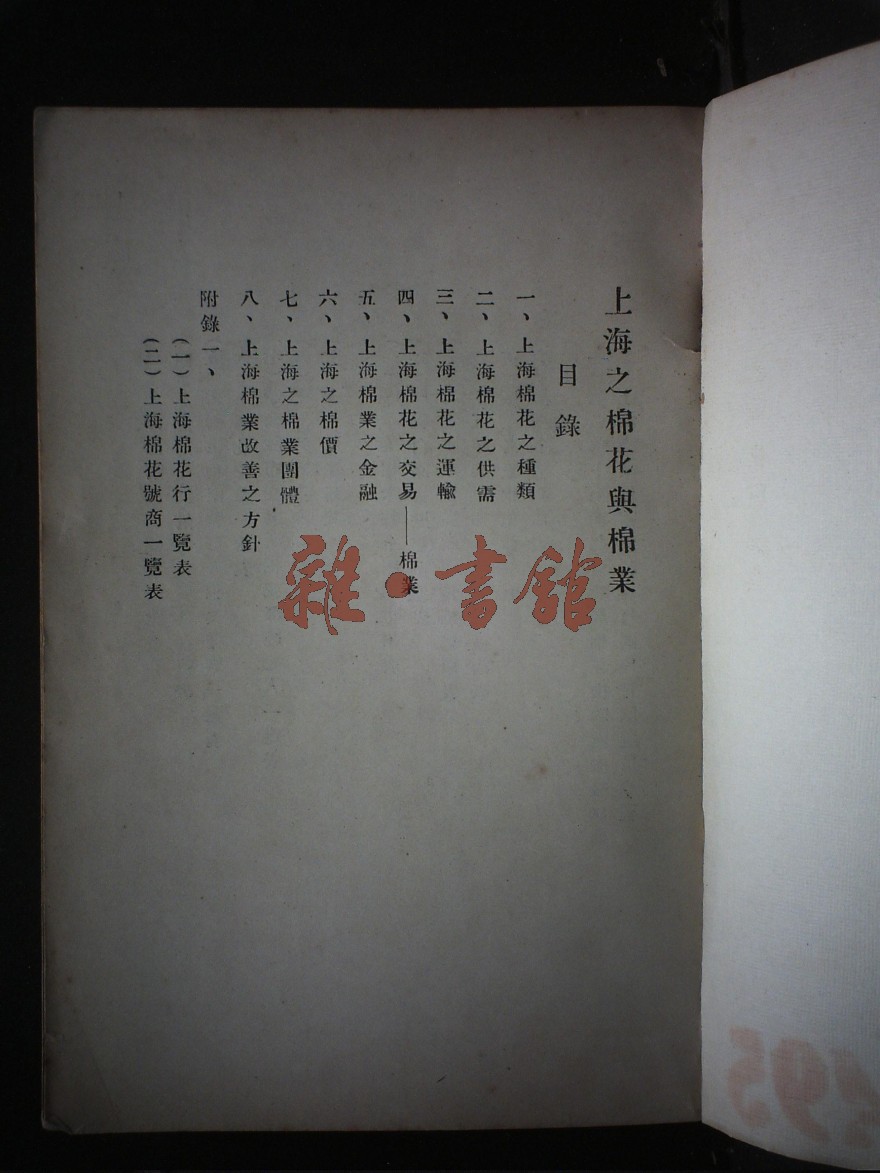 上海之棉花與棉業
目錄
一、上海棉花之種類
二、上海棉花之供需
三、上海棉花之運輸
四、上海棉花之交易——棉業
五、上海棉業之金融
六、上海之棉價
七、上海之棉業團體
八、上海棉業改善之方針
附錄一、
(一)上海棉花行一覽表
(二)上海棉花號商一覽表
雜·書館
595